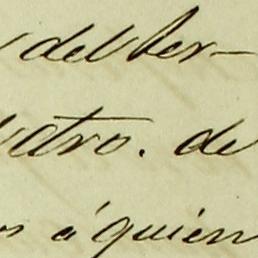 del ber-
atro. de
os á quien